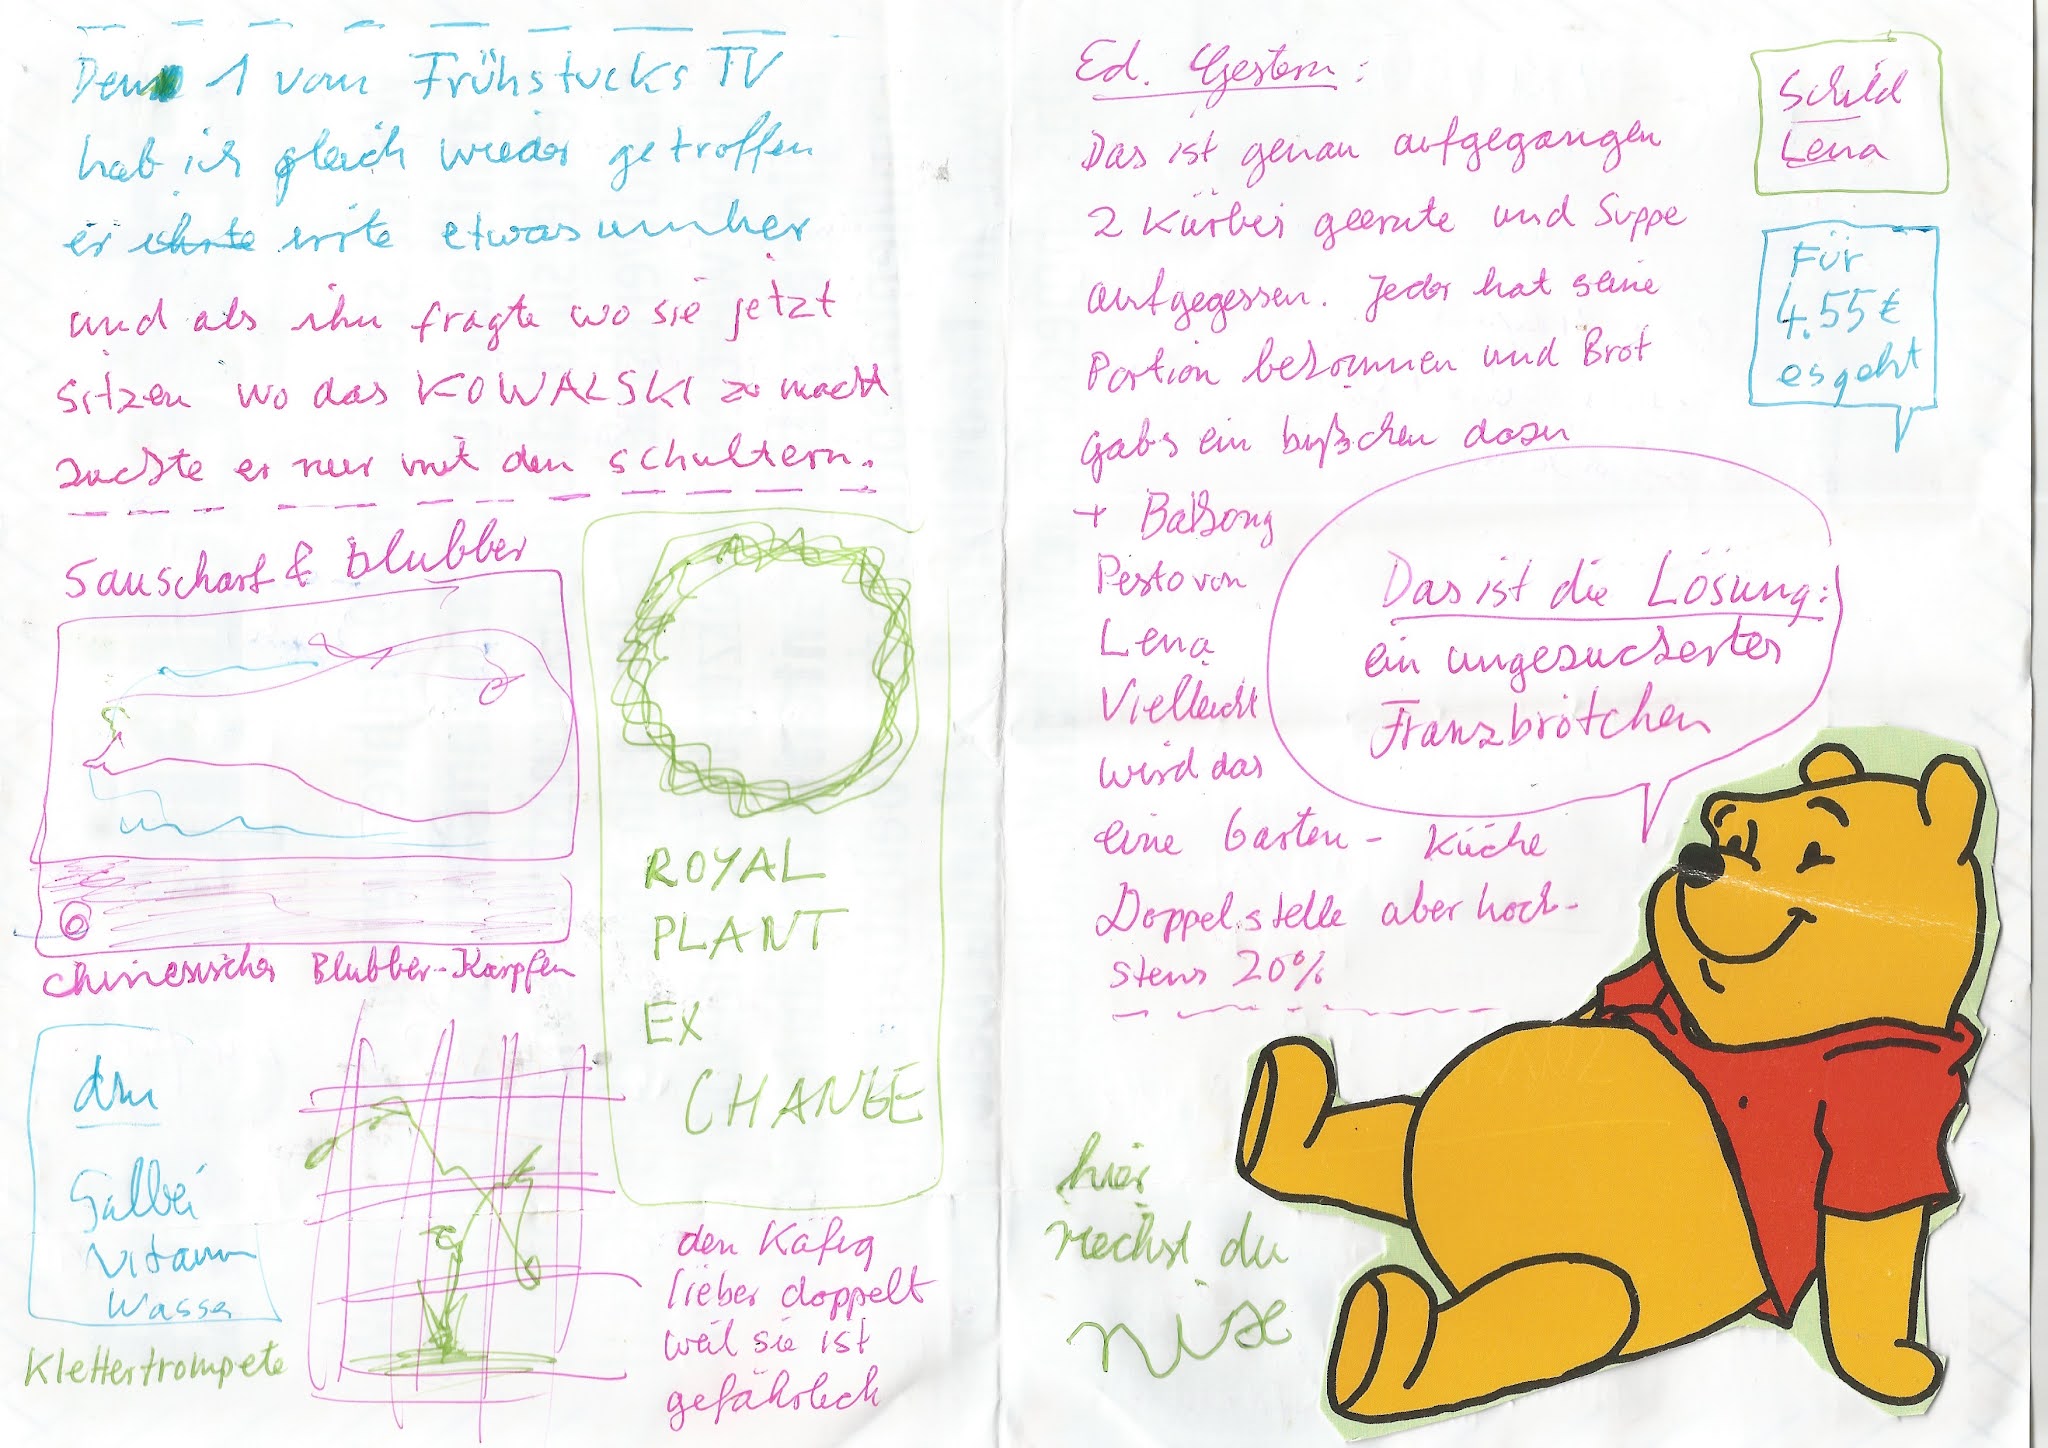 Den 1 vom Frühstücks TV
hab ich gleich wieder getroffen
er irrte etwas umher
und als ihn fragte wo sie jetzt
sitzen wo das KOWALSKI zu macht
zuckte er nur mit den schultern.
Sauscharf & blubber
chinesischer Blubber-Karpfen
dm
Salbei
Vitamin
Wasser
Klettertrompete
ROYAL
PLANT
EX
CHANGE
den Käfig
lieber doppelt
weil sie ist
gefährlich
Ed. Gestern:
Das ist genau aufgegangen
2 Kürbis geernte und Suppe
aufgegessen. Jeder hat seine
Portion bekommen und Brot
gabs ein bißchen dazu
+
Pesto von
Lena
Vielleicht
wird das
eine Garten- Küche
Doppelstelle aber höch-
stens 20%
Schild
Lena
Für
4.55€
es geht
Das ist die Lösung:
ein ungezuckertes
Franzbrötchen
hier
riechst du
nix